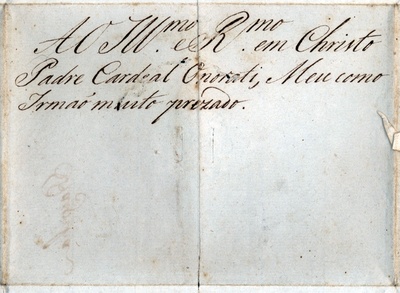 AO Ill.mo e R.mo em Christo
Padre Cardeal Onorati, Meu como
Irmaõ muito prezado.